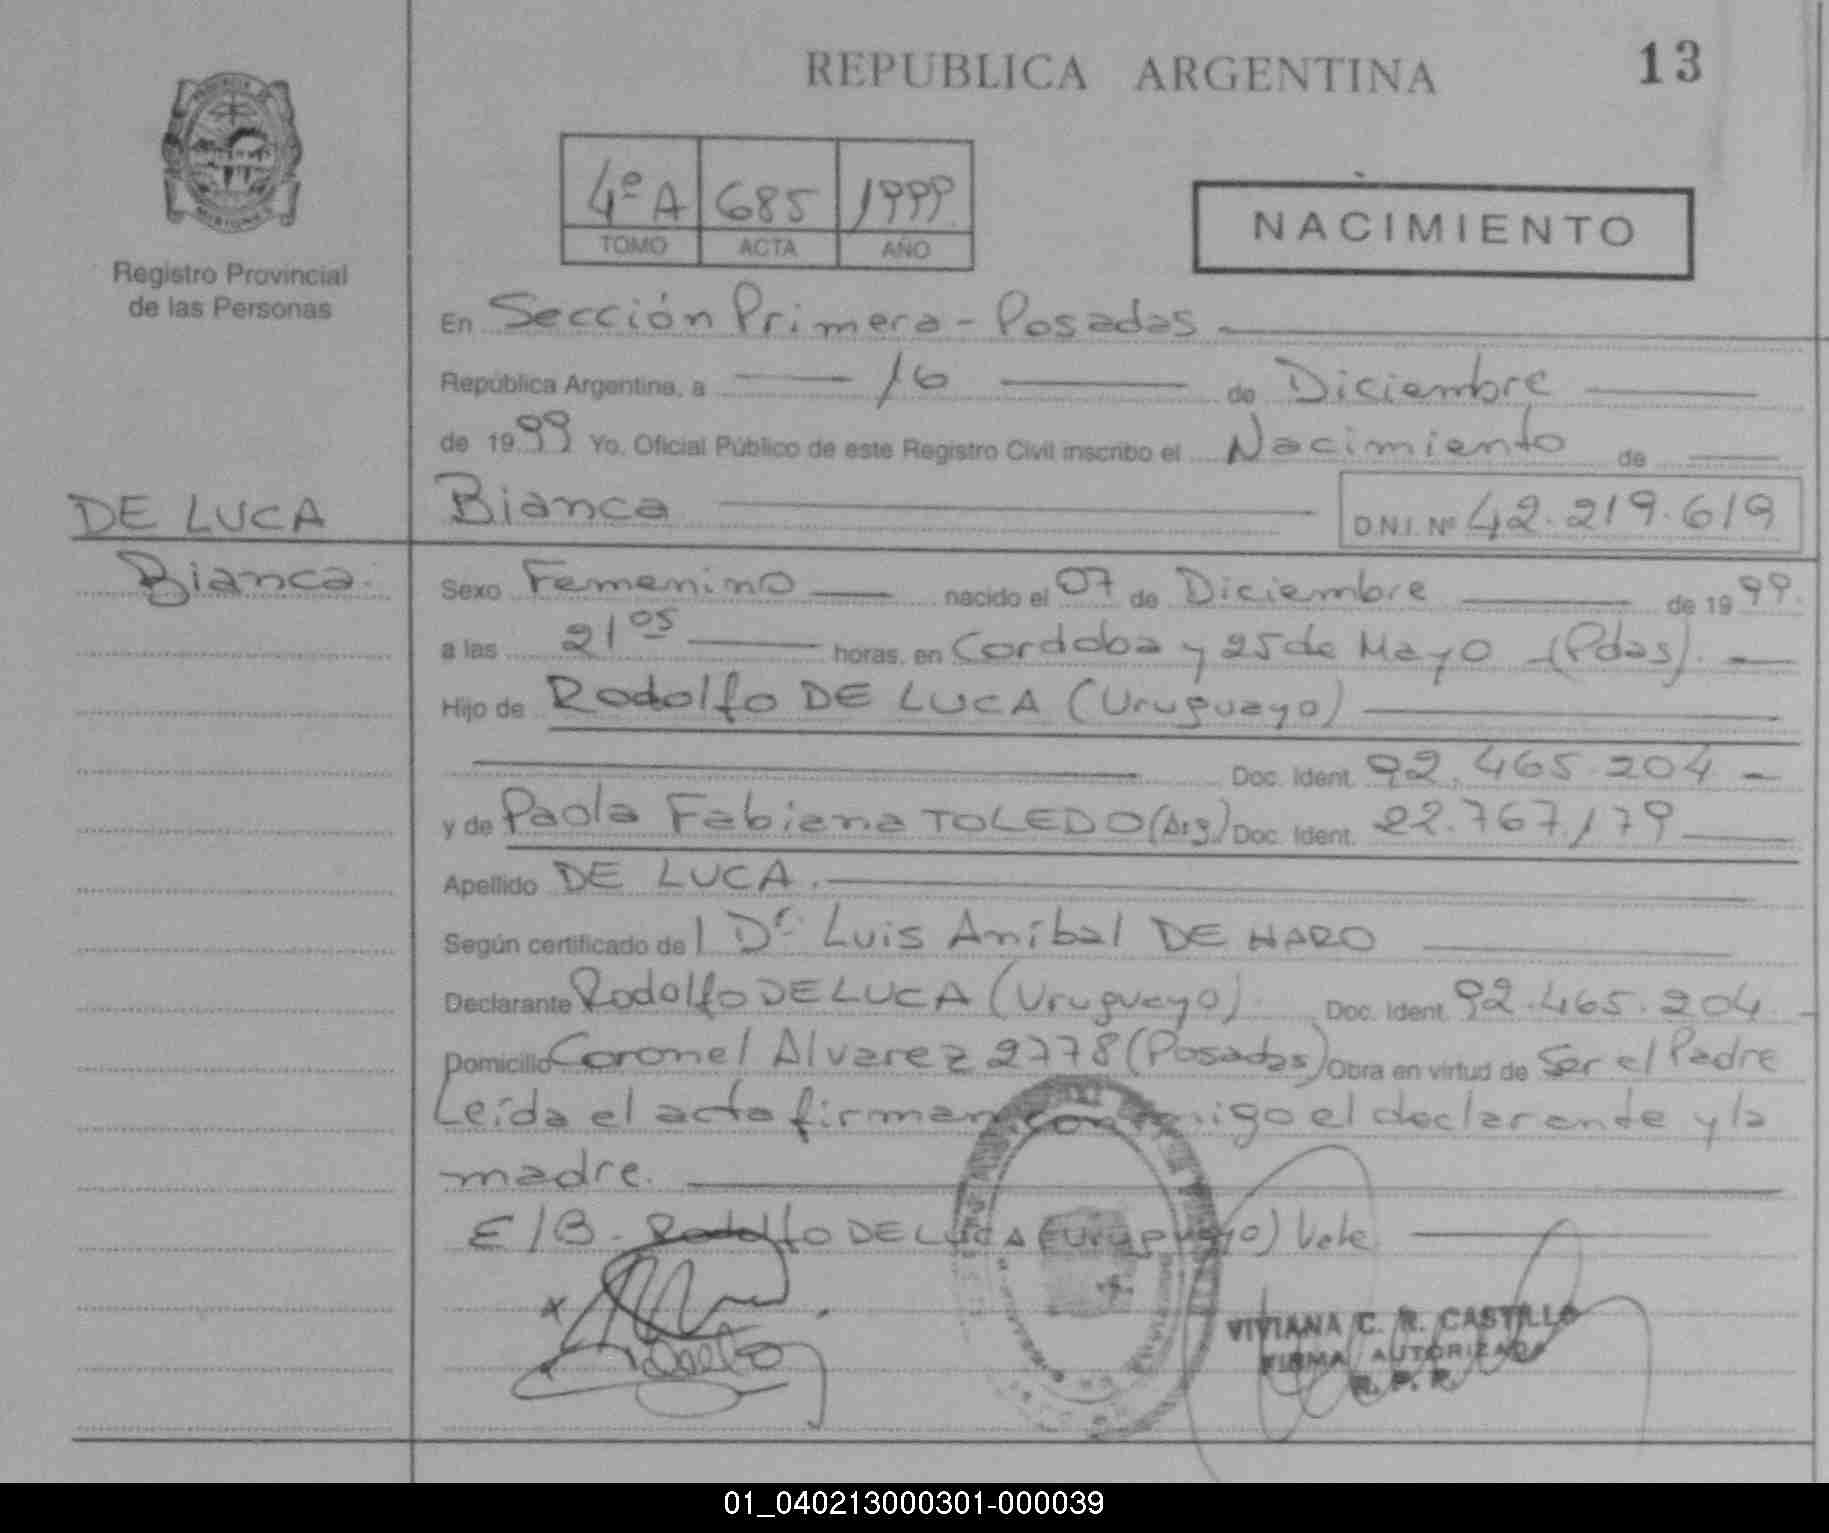 REPUBLICA ARGENTINA
13
4º A 685 1999
TOMO ACTA AÑO
NACIMIENTO
Registro Provincial
de las Personas
En Sección Primera - Posadas
República Argentina, a 16 de Diciembre
de 1999 Yo, Oficial Público de este Registro Civil inscribo el Nacimiento de
DE LUCA
Bianca
Bianca D.N.I. Nº 42.219.619
Sexo Femenino nacido el 07 de Diciembre de 1999.
a las 21 05 horas, en Cordoba y 25 de Mayo (Pdas).
Hijo de Rodolfo DE LUCA (Uruguayo)
Doc. Ident. 92.465.204
y de Paola Fabiana TOLEDO (Arg) Doc. Ident. 22.767.179
Apellido DE LUCA.
Según certificado del Dr. Luis Aníbal DE HARO
Declarante Rodolfo DE LUCA (Uruguayo). Doc. Ident. 92.465.204.
Domicilio Coronel Alvarez 2778 (Posadas) Obra en virtud de Ser el Padre
Leída el acta firman conmigo el declarante y la
madre.
E/B. Rodolfo DE LUCA (Uruguayo) Vale
VIVIANA C. R. CASTILLO
FIRMA AUTORIZADA
R. P. P.
01_040213000301-000039